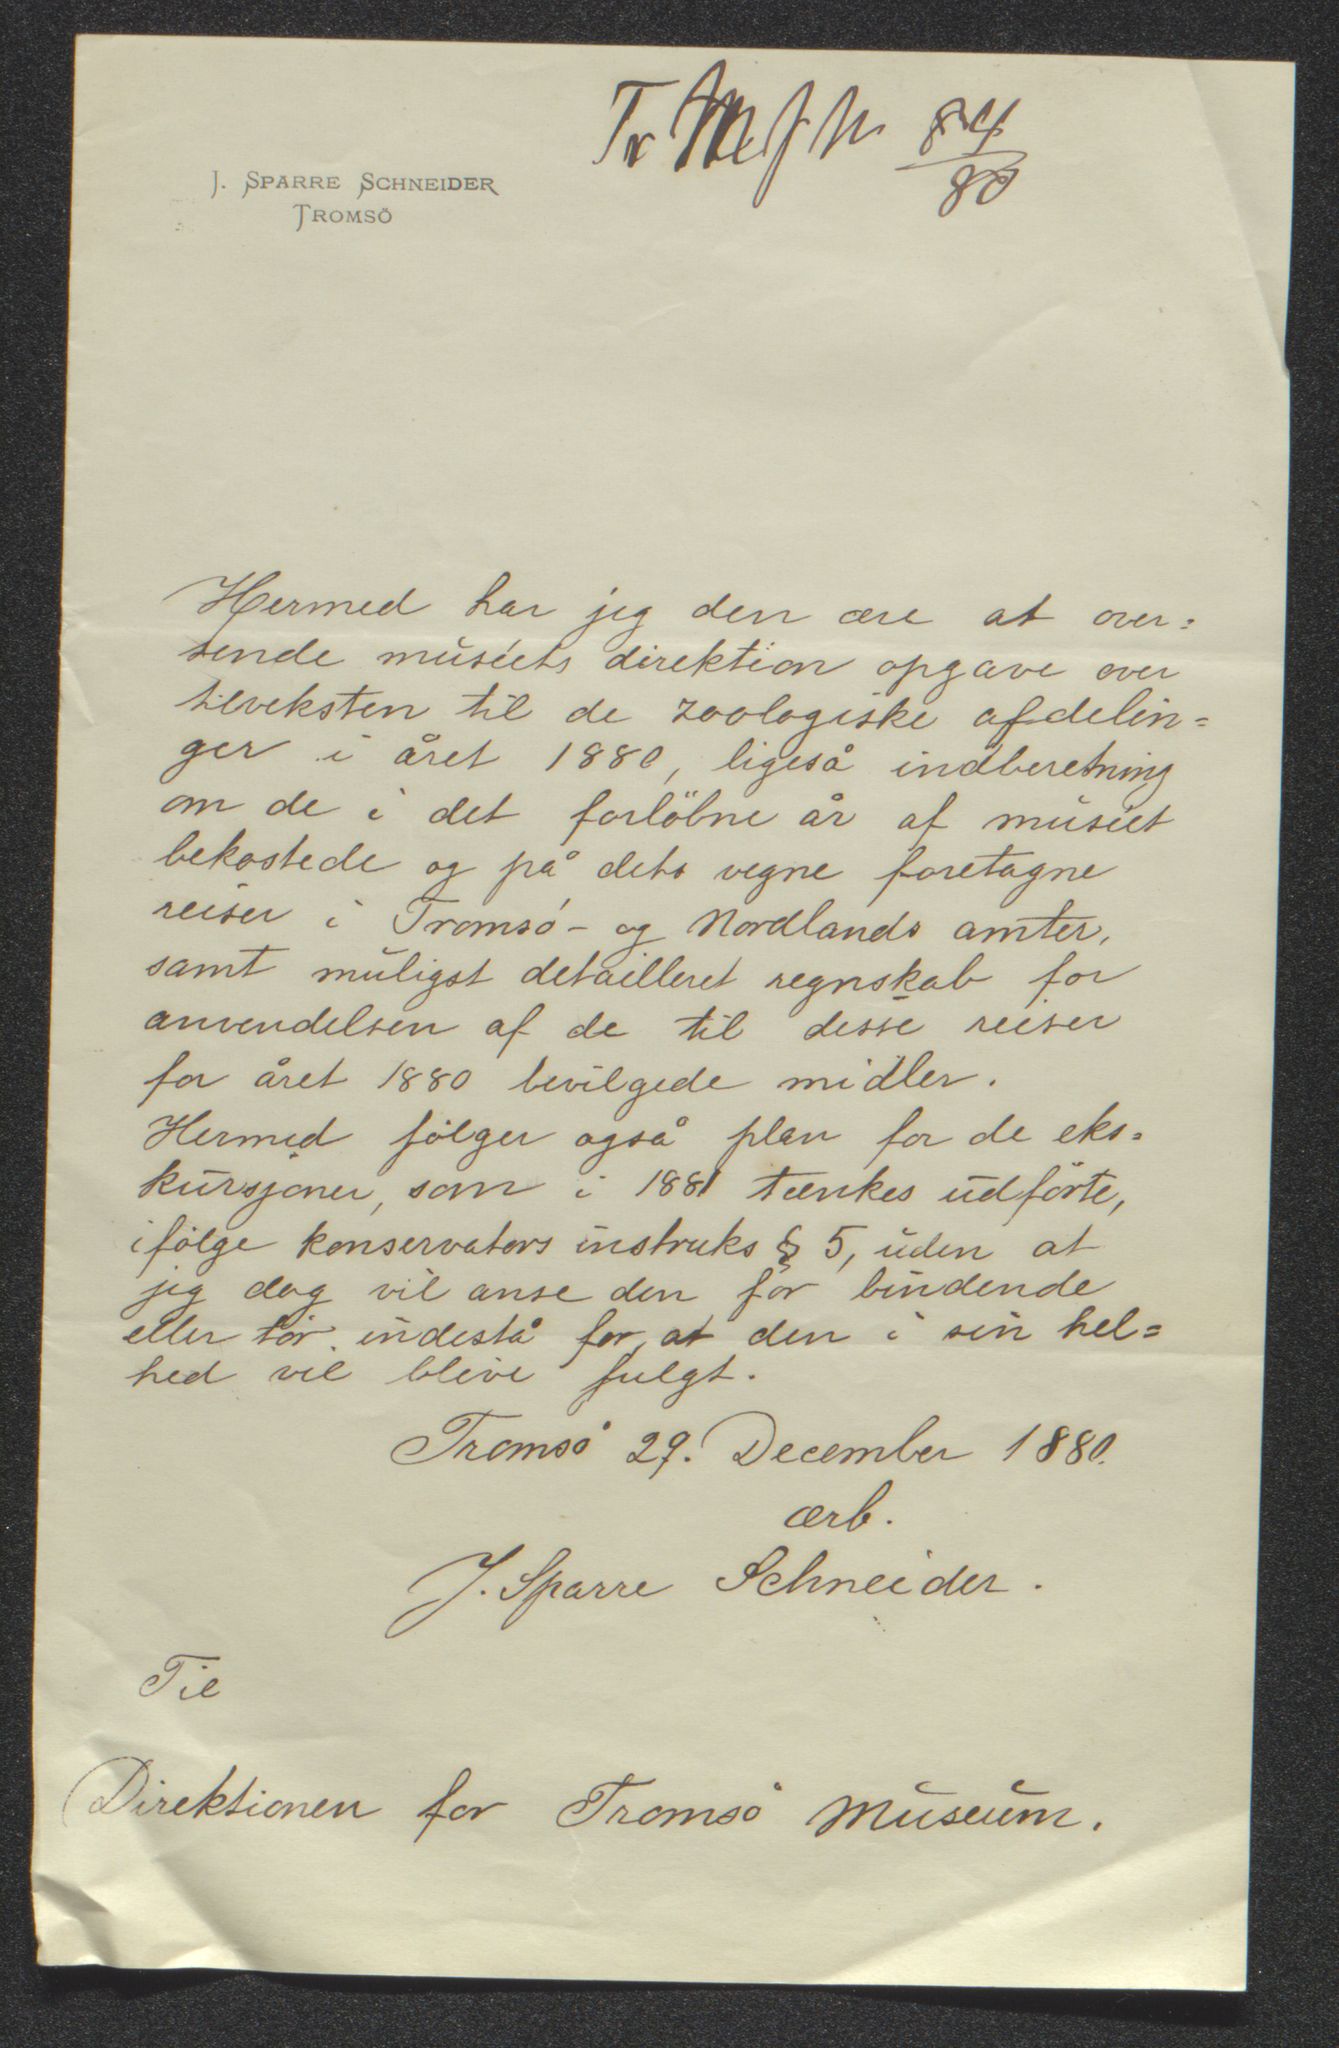 Tr M J N 84/80
J. SPARRE SCHNEIDER
TROMSÖ
Hermed har jeg den ære at over=
sende muséets direktion opgave over
tilveksten til de zoologiske afdelin=
ger i året 1880, ligeså indberetning
om de i det forlöbne år af muséet
bekostede og på dets vegne foretagne
reiser i Tromsö- og Nordlands amter,
samt muligst detailleret regnskab for
anvendelsen af de til disse reiser
for året 1880 bevilgede midler.
Hermed fölger også plan for de eks=
kursjoner, som i 1881 tænkes udförte,
ifölge konservators instruks § 5, uden at
jeg dog vil anse den for bindende
eller tör indestå for, at den i sin hel=
hed vil blive fulgt.
Tromsö 29. December 1880.
ærb.
J. Sparre Schneider.
Til
Direktionen for Tromsö Museum.